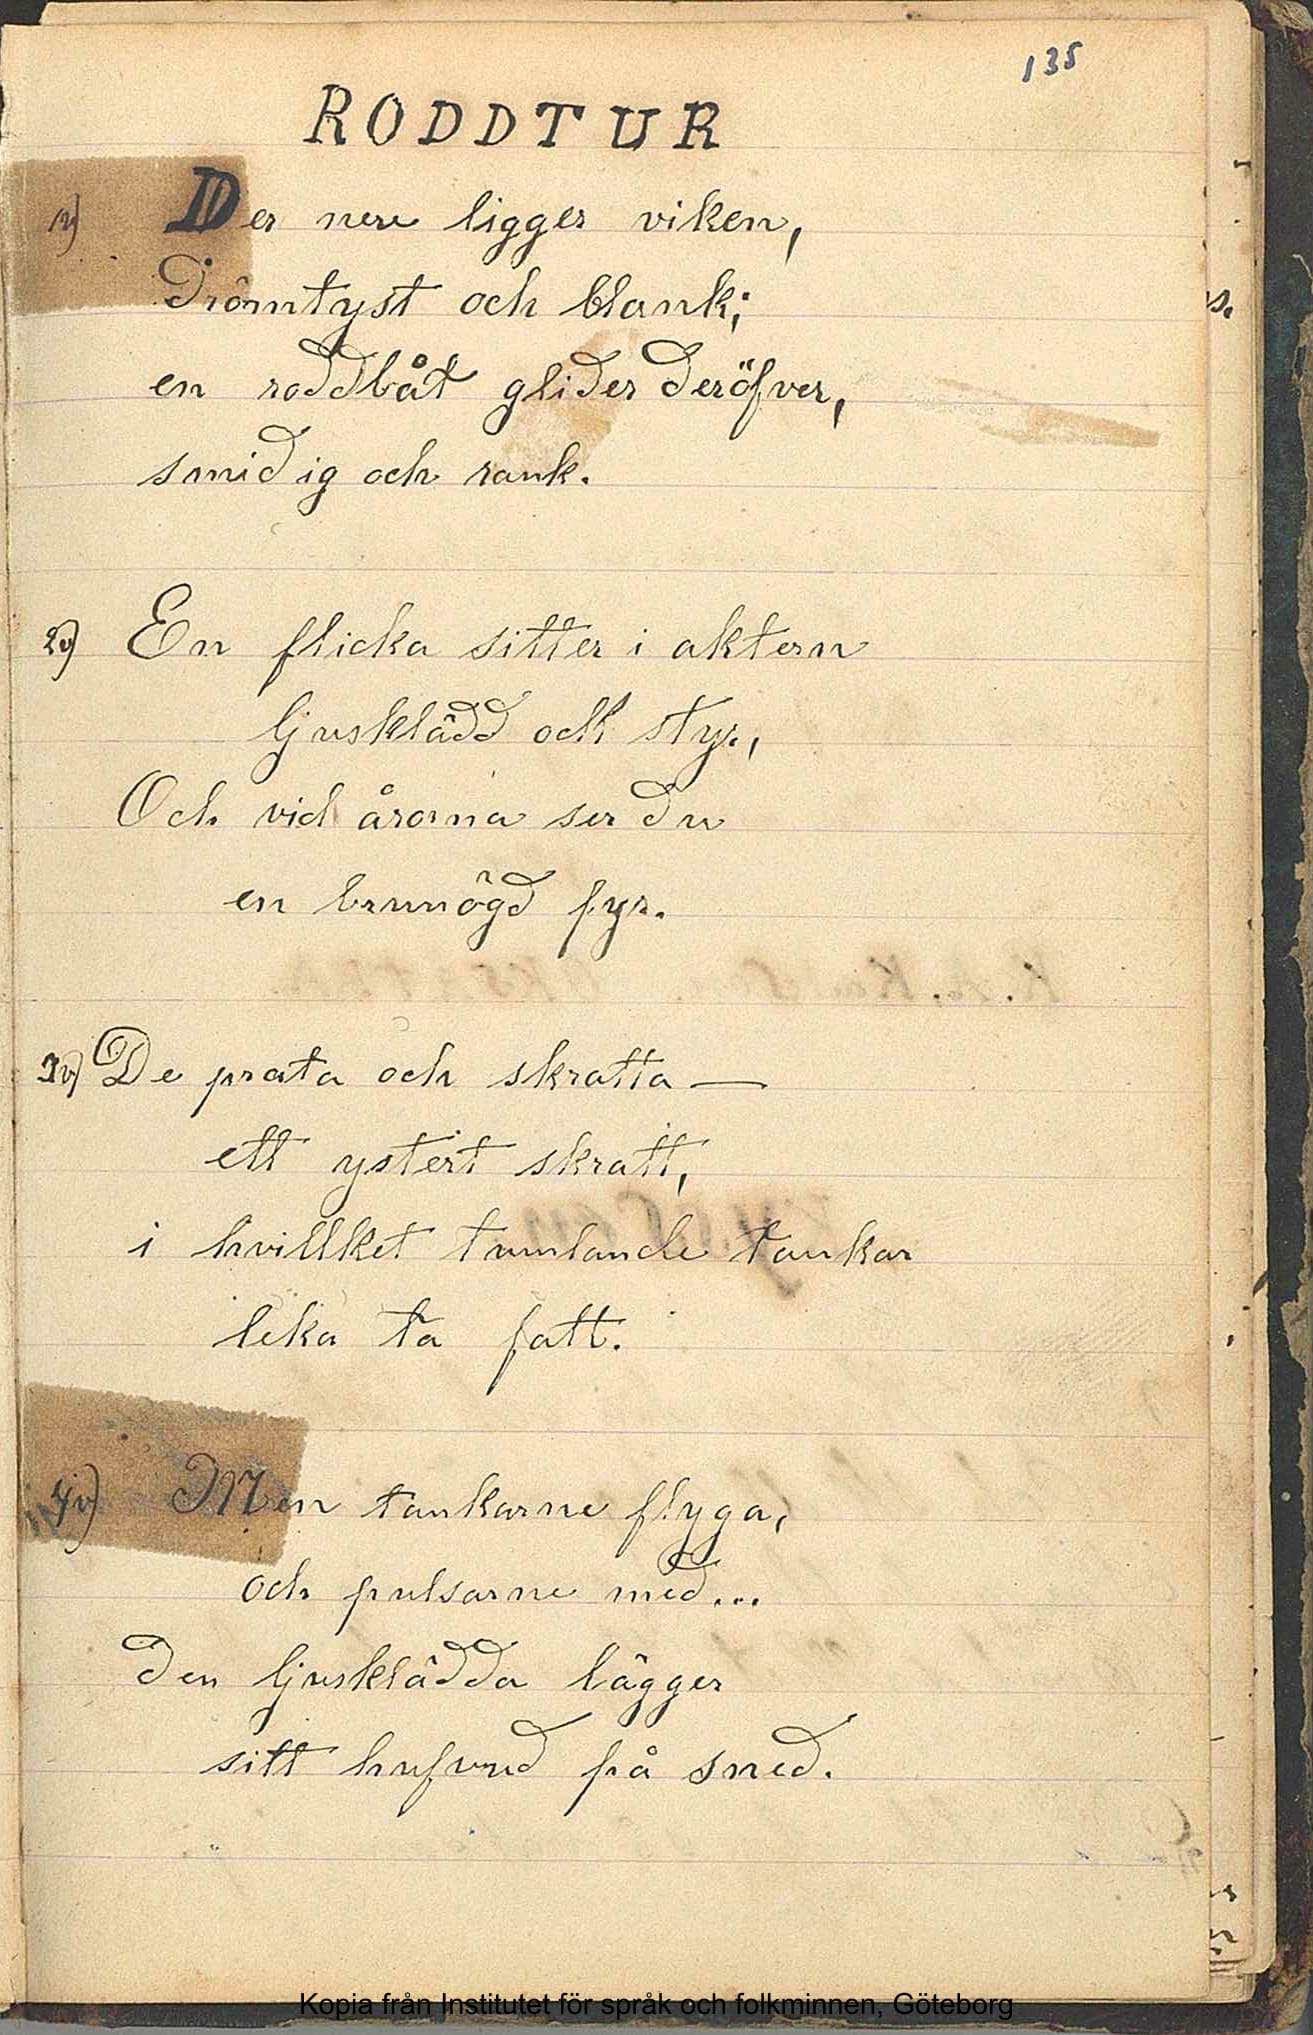 135
RODDTUR
1v) Der nere ligger viken,
Drömtyst och blank;
en roddbåt glider deröfver,
smidig och rank.
2v) En flicka sitter i aktern
ljusklädd och styr,
Och vid årorna ser du
en brunögd fyr.
3v) De prata och skratta —
ett ystert skratt,
i hvillket tumlande tankar
leka ta fatt.
4v) Men tankarne flyga,
och pulsarne med...
Den ljusklädda lägger
sitt hufvud på sned.
Kopia från Institutet för språk och folkminnen, Göteborg